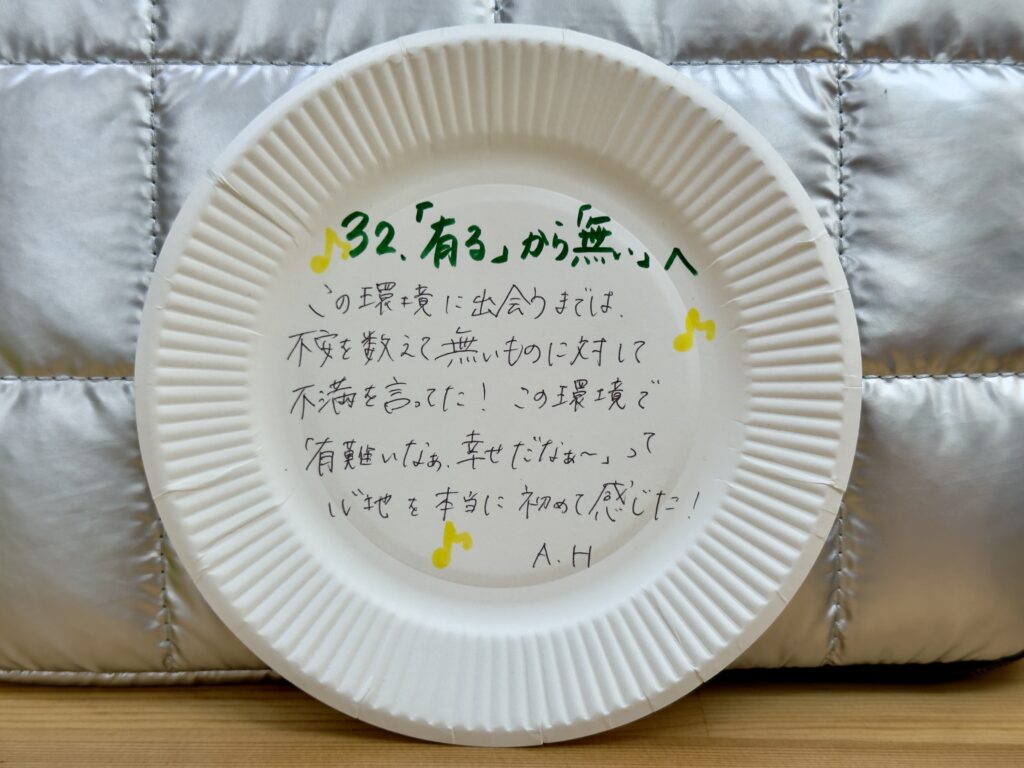 32.「有る」から「無い」へ
この環境に出会うまでは、
不安を数えて無いものに対して
不満を言ってた！この環境で
「有難いなぁ、幸せだなぁ〜」って
心地を本当に初めて感じた！
A.H